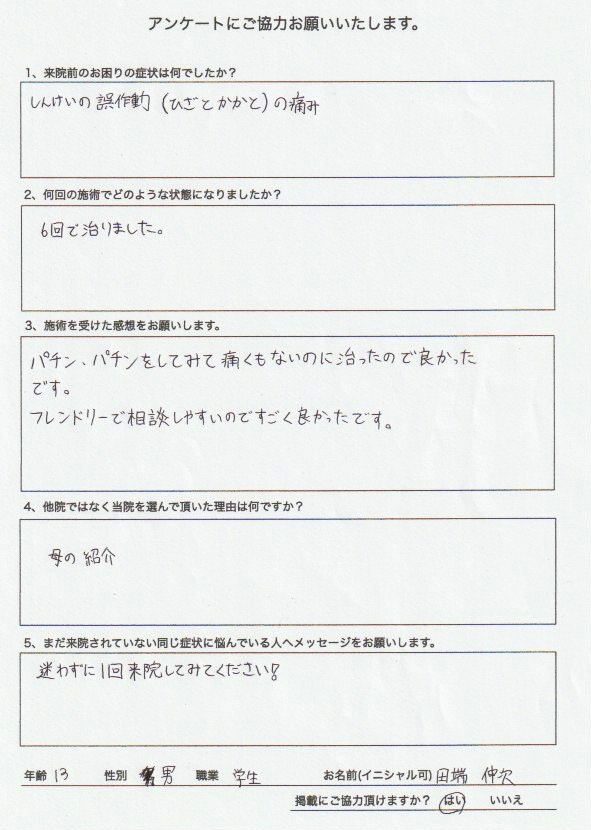 アンケートにご協力お願いいたします。
1、来院前のお困りの症状は何でしたか？
しんけいの誤作動（ひざとかかと）の痛み
2、何回の施術でどのような状態になりましたか？
6回で治りました。
3、施術を受けた感想をお願いします。
パチン、パチンをしてみて痛くもないのに治ったので良かった
です。
フレンドリーで相談しやすいのですごく良かったです。
4、他院ではなく当院を選んで頂いた理由は何ですか？
母の紹介
5、まだ来院されていない同じ症状に悩んでいる人へメッセージをお願いします。
迷わずに1回来院してみてください！
年齢 13 性別 男 職業 学生 お名前(イニシャル可) 田端 伸次
掲載にご協力頂けますか？ はい いいえ